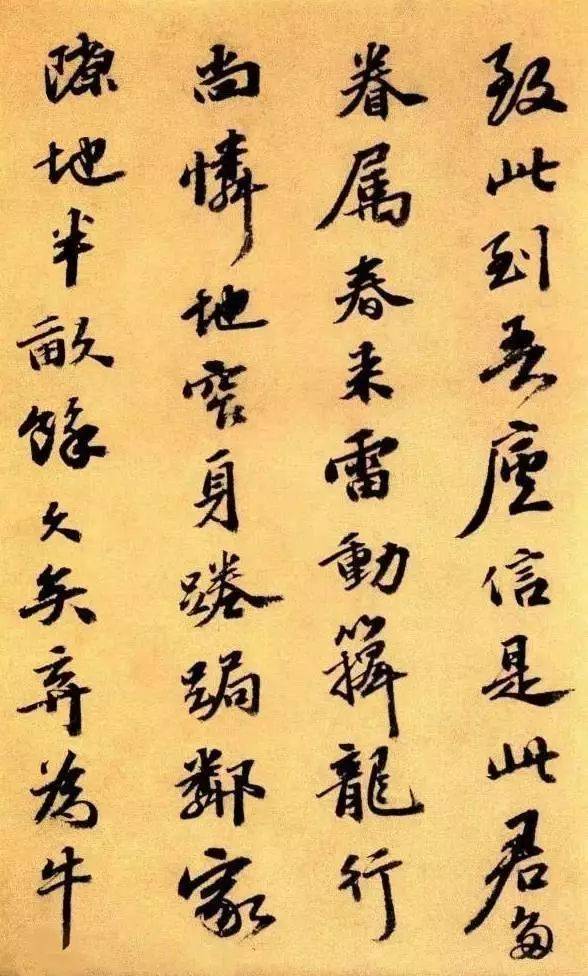 致此到吾廬信是此君多
眷属春来雷動籜龍行
尚憐地窄身踡跼鄰家
隙地半畝餘久矣弃為牛